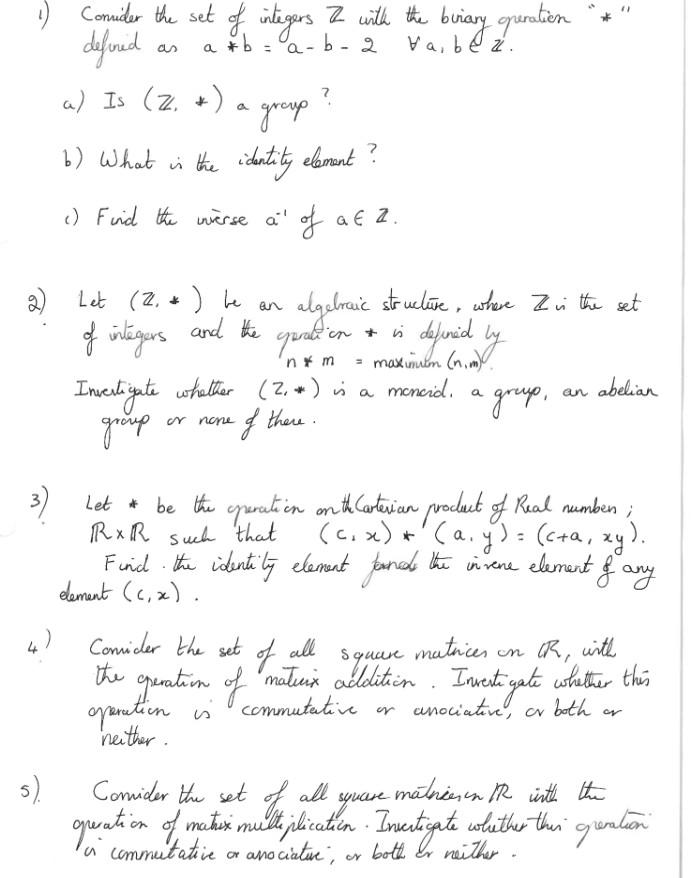 1) Consider the set of integers ℤ with the binary operation "*"
defined as a * b = a - b - 2 ∀ a, b ∈ ℤ.
a) Is (ℤ, *) a group?
b) What is the identity element?
c) Find the inverse a⁻¹ of a ∈ ℤ.
2) Let (ℤ, *) be an algebraic structure, where ℤ is the set
of integers and the operation * is defined by
n * m = maximum (n, m).
Investigate whether (ℤ, *) is a monoid, a group, an abelian
group or none of these.
3) Let * be the operation on the Cartesian product of Real numbers;
ℝ×ℝ such that (c, x) * (a, y) = (c+a, xy).
Find the identity element the inverse element of any
element (c, x).
4) Consider the set of all square matrices on ℝ, with
the operation of matrix addition. Investigate whether this
operation is commutative or associative, or both or
neither.
5) Consider the set of all square matrices in ℝ with the
operation of matrix multiplication. Investigate whether this operation
is commutative or associative, or both or neither.